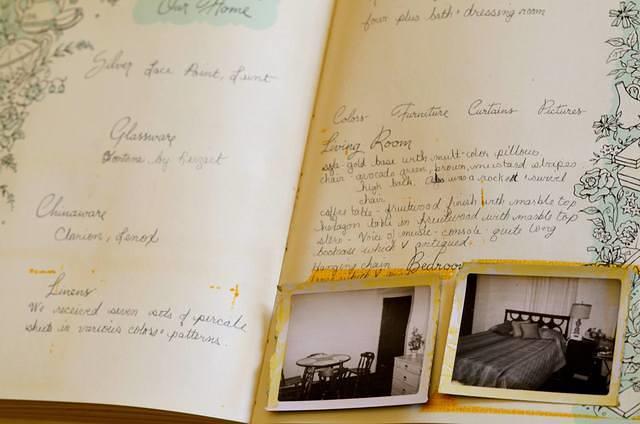 Our Home
Silver Lace Point, Lunt
Glassware
Fontaine by
Chinaware
Clarion, Lenox
Linens
We received seven sets of percale
sheets in various colors + patterns.
four plus bath + dressing room
Colors Furniture Curtains Pictures
Living Room
sofa - gold base with multi-color pillows
chair - avocado green, brown, mustard stripes
high back. Also was a rocker + swivel
chair
coffee table - fruitwood finish with marble top
hexagon table in fruitwood with marble top
stereo - Voice of music - console - quite long
bookcase which V antiqued.
Hanging chain
Bedroom